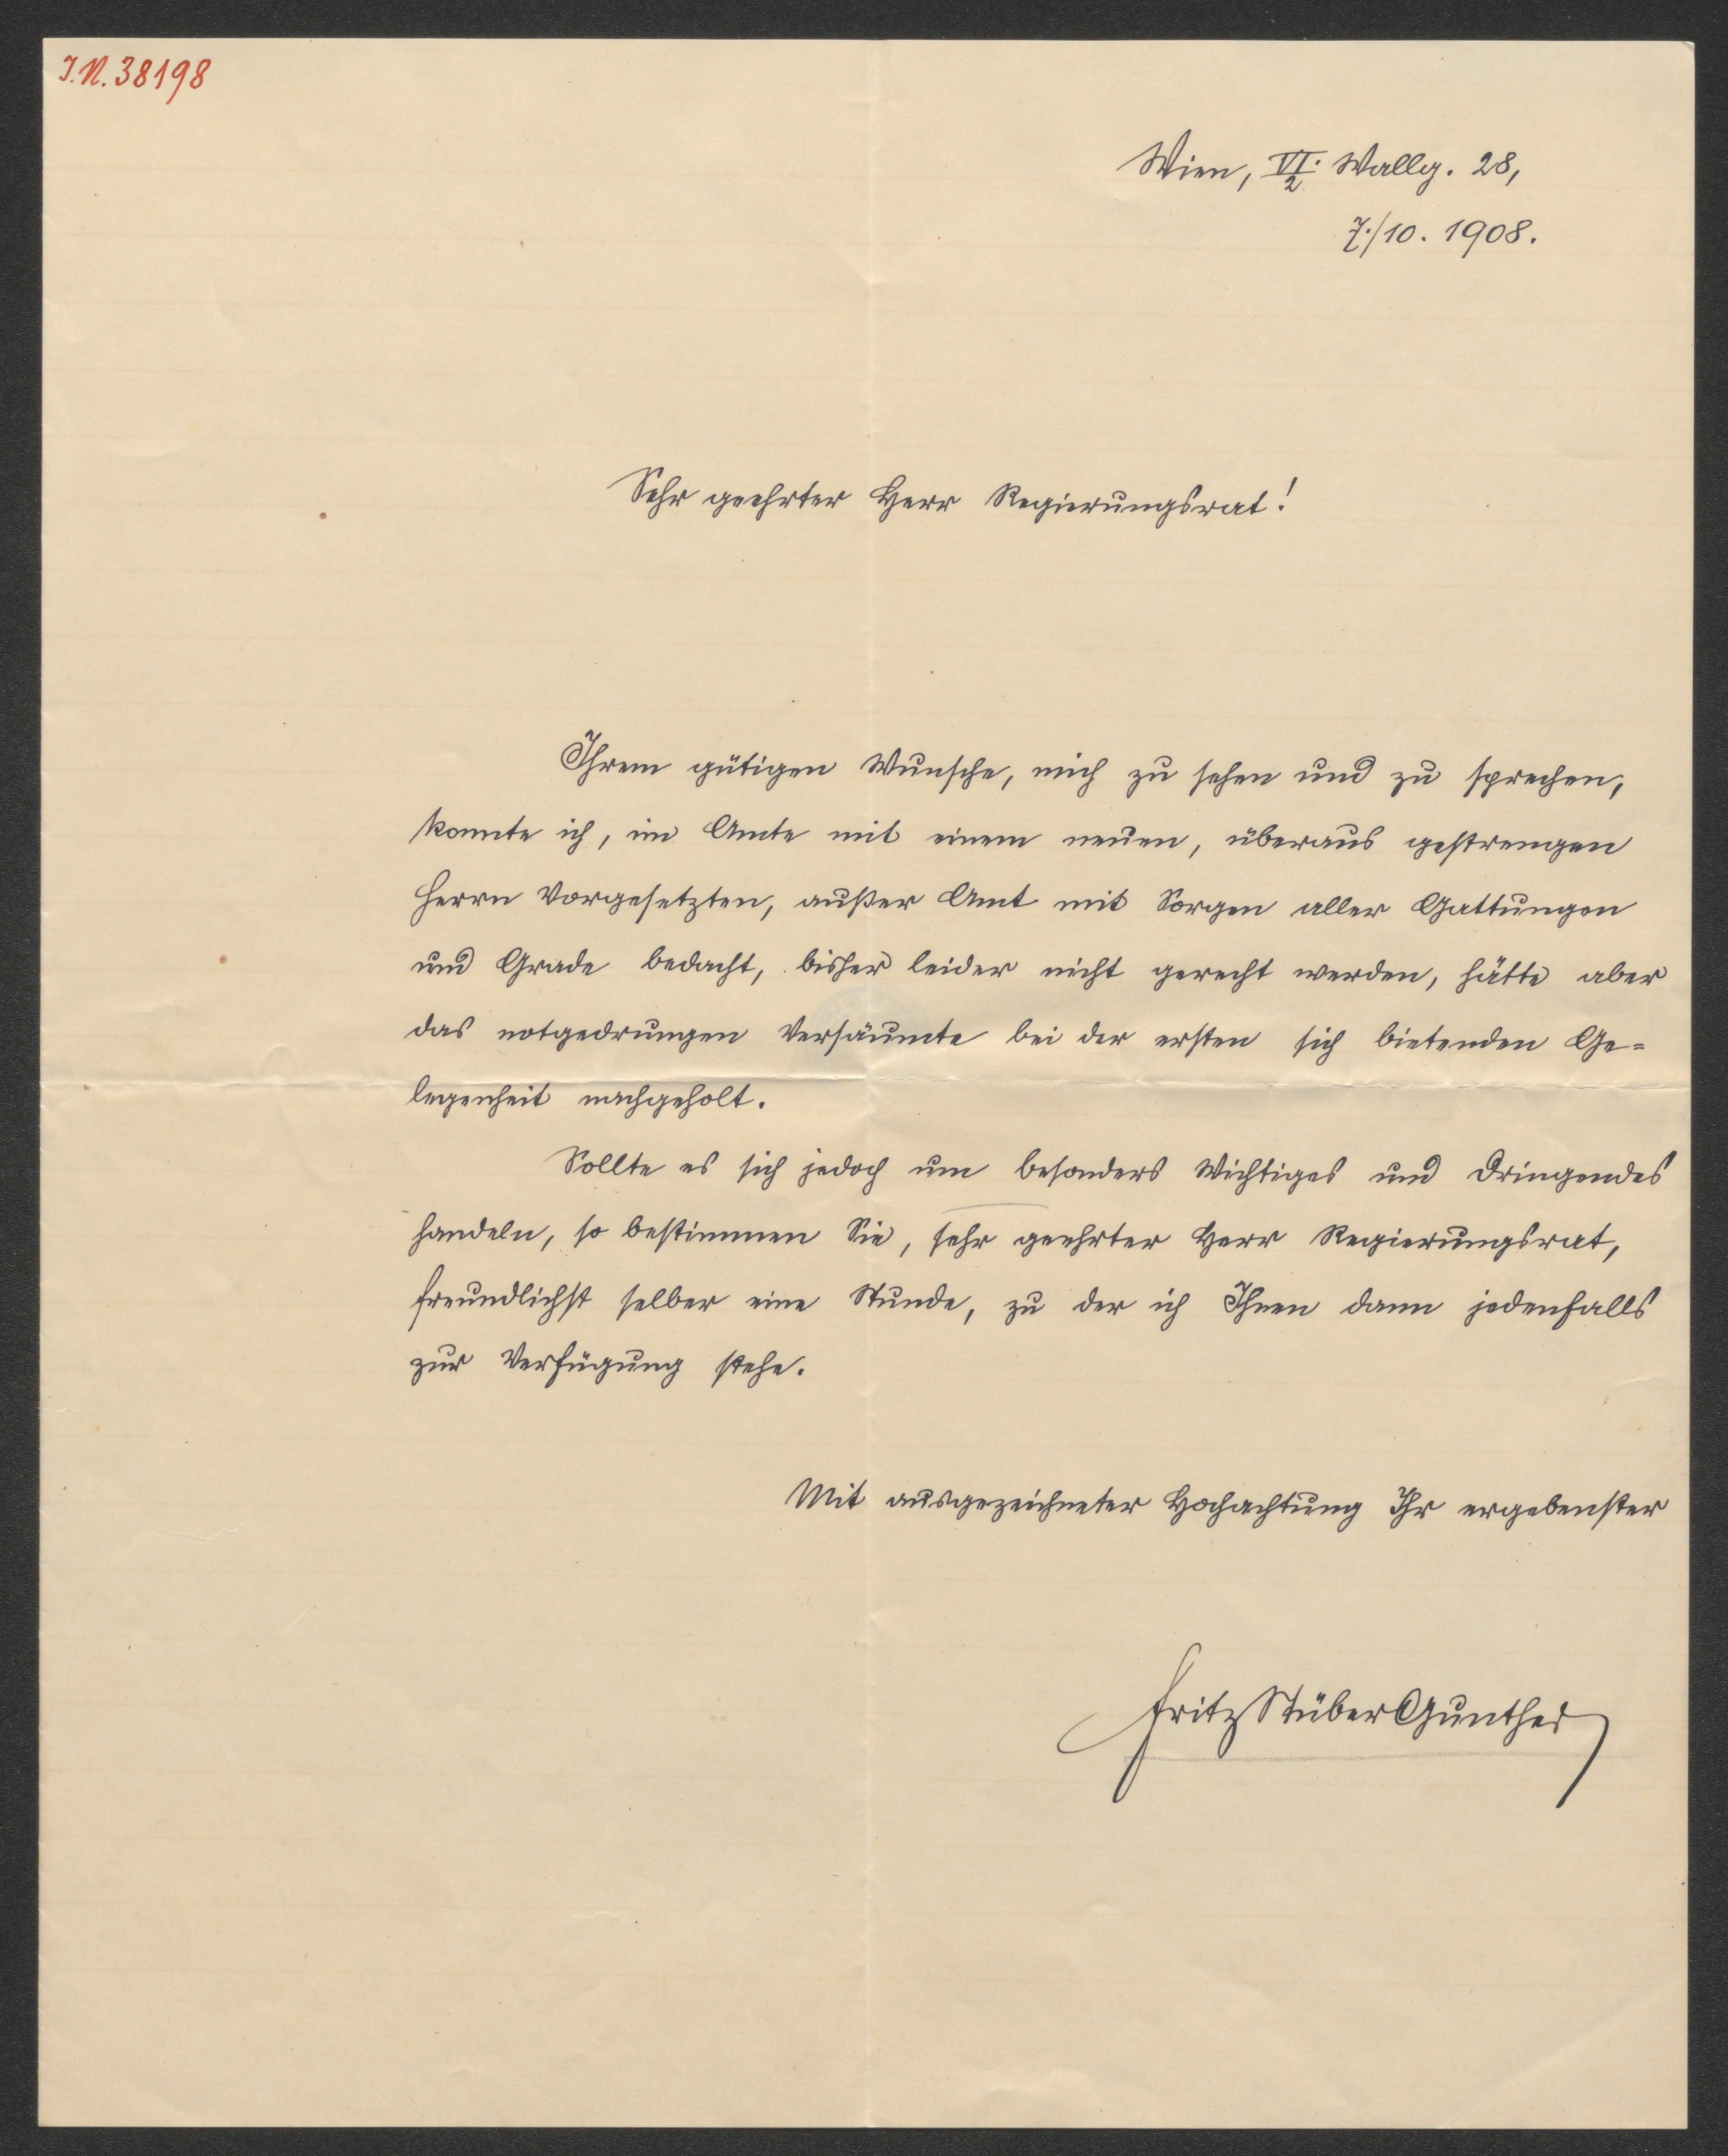 J.N. 38198
Wien, VI./2. Wallg. 28,
7./10. 1908.
Sehr geehrter Herr Regierungsrat!
Ihrem gütigen Wunsche, mich zu sehen und zu sprechen,
konnte ich, im Amte mit einem neuen, überaus gestrengen
Herrn Vorgesetzten, außer Amt mit Sorgen aller Gattungen
und Grade bedacht, bisher leider nicht gerecht werden, hätte aber
das notgedrungen Versäumte bei der ersten sich bietenden Ge=
legenheit nachgeholt.
Sollte es sich jedoch um besonders Wichtiges und Dringendes
handeln, so bestimmen Sie, sehr geehrter Herr Regierungsrat,
freundlichst selber eine Stunde, zu der ich Ihnen dann jedenfalls
zur Verfügung stehe.
Mit ausgezeichneter Hochachtung Ihr ergebenster
Fritz Stüber Gunther